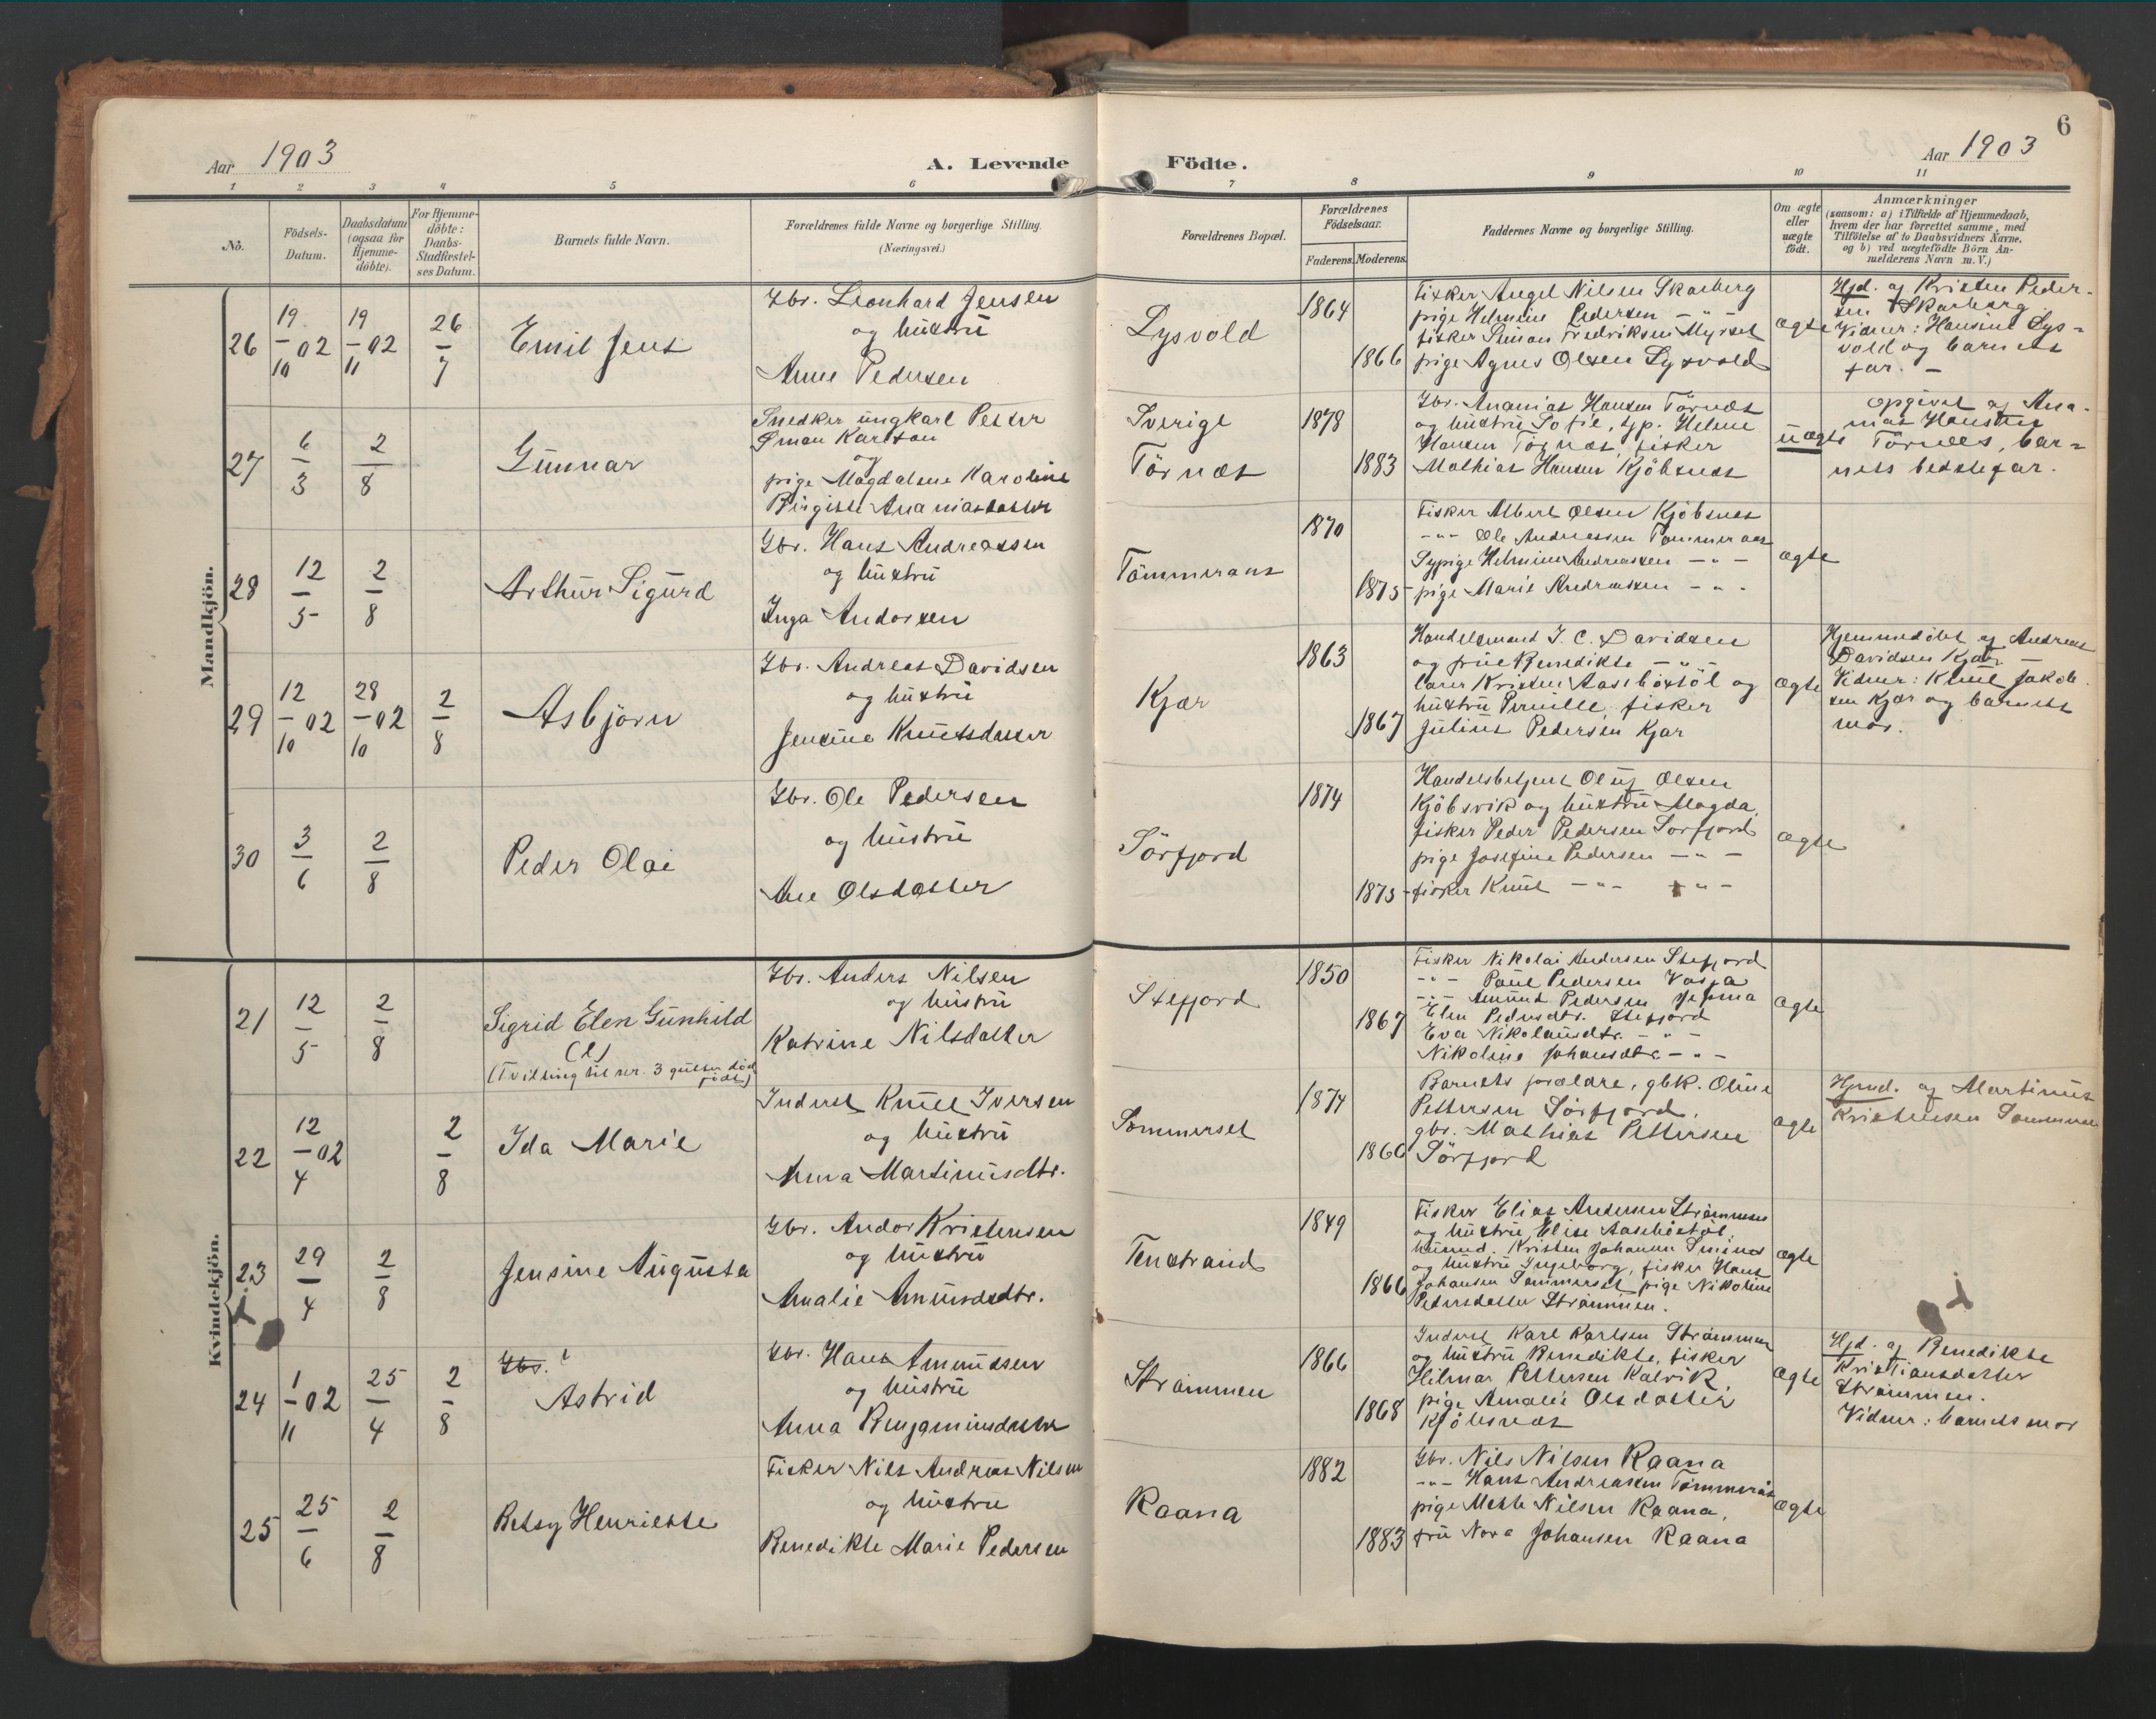 Aar 1903
A. Levende
Födte.
Aar 1903
6
1 2 3 4 5 6 7 8 9 10 11
No.
Födsels-
Datum.
Daabsdatum
(ogsaa for
Hjemme-
döbte).
For Hjemme-
döbte:
Daabs-
Stadfæstel-
ses Datum.
Barnets fulde Navn.
Forældrenes fulde Navne og borgerlige Stilling.
(Næringsvei.)
Forældrenes Bopæl.
Forældrenes
Födselsaar.
Faderens. Moderens.
Faddernes Navne og borgerlige Stilling.
Om ægte
eller
uægte
födt.
Anmærkninger
(saasom: a) i Tilfælde af Hjemmedaab,
hvem der har forrettet samme, med
Tilföielse af to Daabsvidners Navne.
og b) ved uægtefödte Börn An-
melderens Navn m. V.)
Mandkjön.
26
19/10 02
19/11 02
26/7
Emil Jens
Gbr. Leonhard Jensen
og hustru
Anne Pedersen
Lysvold
1864
1866
Fisker Angel Nilsen Skarberg
pige Helmine Pedersen - " -
fisker Simon Fredriksen Myrset
pige Agnes Olsen Lysvold
ægte
Hjd. af Kristen Peder-
sen Skarberg
Vidner: Hansine Lys-
vold og barnets
far. -
27
6/3
2/8
Gunnar
Snedker ungkarl Petter
Øman Karlson
og
pige Magdalene Karoline
Birgitte Ananiasdatter
Sverige
Törnæs
1878
1883
Gbr. Ananias Hansen Törnæs
og hustru Sofie, sp. Helene
Hansen Törnæs, fisker
Mathias Hansen Kjöbsnæs
uægte
opgivet af Ana-
nias Hansen
Törnæs, bar-
nets bedstefar.
28
12/5
2/8
Arthur Sigurd
Gbr. Hans Andreassen
og hustru
Inga Andorsen
Tömmeraas
1870
1875
Fisker Albert Olsen Kjöbsnes
- " - Ole Andreassen Tömmeraas
Sypige Helmine Andreassen - " -
pige Marie Andreassen - " -
ægte
29
12/10 02
28/10 02
2/8
Asbjørn
Gbr. Andreas Davidsen
og hustru
Jensine Knutsdatter
Kjær
1863
1867
Handelsmand J. C. Davidsen
og frue Benedikte - " -
lærer Kristen Aasebøstöl og
hustru Pernille, fisker
Julius Pedersen Kjær
ægte
Hjemmedöbt af Andreas
Davidsen Kjær. -
Vidner: Knut Jakob-
sen Kjær og barnets
mor.
30
3/6
2/8
Peder Olai
Gbr. Ole Pedersen
og hustru
Ane Olsdatter
Sörfjord
1874
1875
Handelsbetjent Oluf Olsen
Kjöbsvik og hustru Magda,
fisker Peder Pedersen Sörfjord
pige Josefine Pedersen - " -
fisker Knut - " - - " -
ægte
Kvindekjön.
21
12/5
2/8
Sigrid Elen Gunhild
(l)
(Tvilling til nr. 3 gutter död
född)
Gbr. Anders Nilsen
og hustru
Katrine Nilsdatter
Stefjord
1850
1867
Fisker Nikolai Andersen Stefjord
- " - Paul Pedersen Vasja
- " - Amund Pedersen
Elen Pedersdtr. Stefjord
Eva Nikolaisdtr. - " -
Nikoline Johansdtr - " -
ægte
22
12/4 02
2/8
Ida Marie
Inderst Knut Iversen
og hustru
Anna Martinusdtr.
Sommerset
1874
1860
Barnets forældre, gbk. Oline
Pettersen Sörfjord,
gbr. Mathias Pettersen
Sörfjord
ægte
Hjmd. af Martinus
Kristensen Sommerset
23
29/4
2/8
Jensine Augusta
Gbr. Andor Kristensen
og hustru
Amalie Amundsdtr.
Tenstrand
1849
1866
Fisker Elias Andersen Strømmen
og hustru Elise Aasebøstöl,
husmd. Kristen Johansen
og hustru Ingeborg, fisker Hans
Johansen Sommerset, pige Nikoline
Pedersdatter Strømmen.
ægte
24
1/11 02
25/4
2/8
Gbr.
Astrid
Gbr. Hans Amundsen
og hustru
Anna Benjaminsdatter
Strømmen
1866
1868
Inderst Karl Karlsen Strømmen
og hustru Benedikte, fisker
Hilmar Pettersen Kalvik,
pige Amalie Olsdatter
Kjöbsnæs
ægte
Hjd. af Benedikte
Kristiansdatter
Strømmen.
Vidner: barnets mor
25
25/6
2/8
Betsy Henriette
Fisker Nils Andreas Nilsen
og hustru
Benedikte Marie Pedersen
Raana
1882
1883
Gbr. Nils Nilsen Raana
- " - Hans Andreassen Tömmerås
pige Mette Nilsen Raana,
fru Nora Johansen Raana
ægte